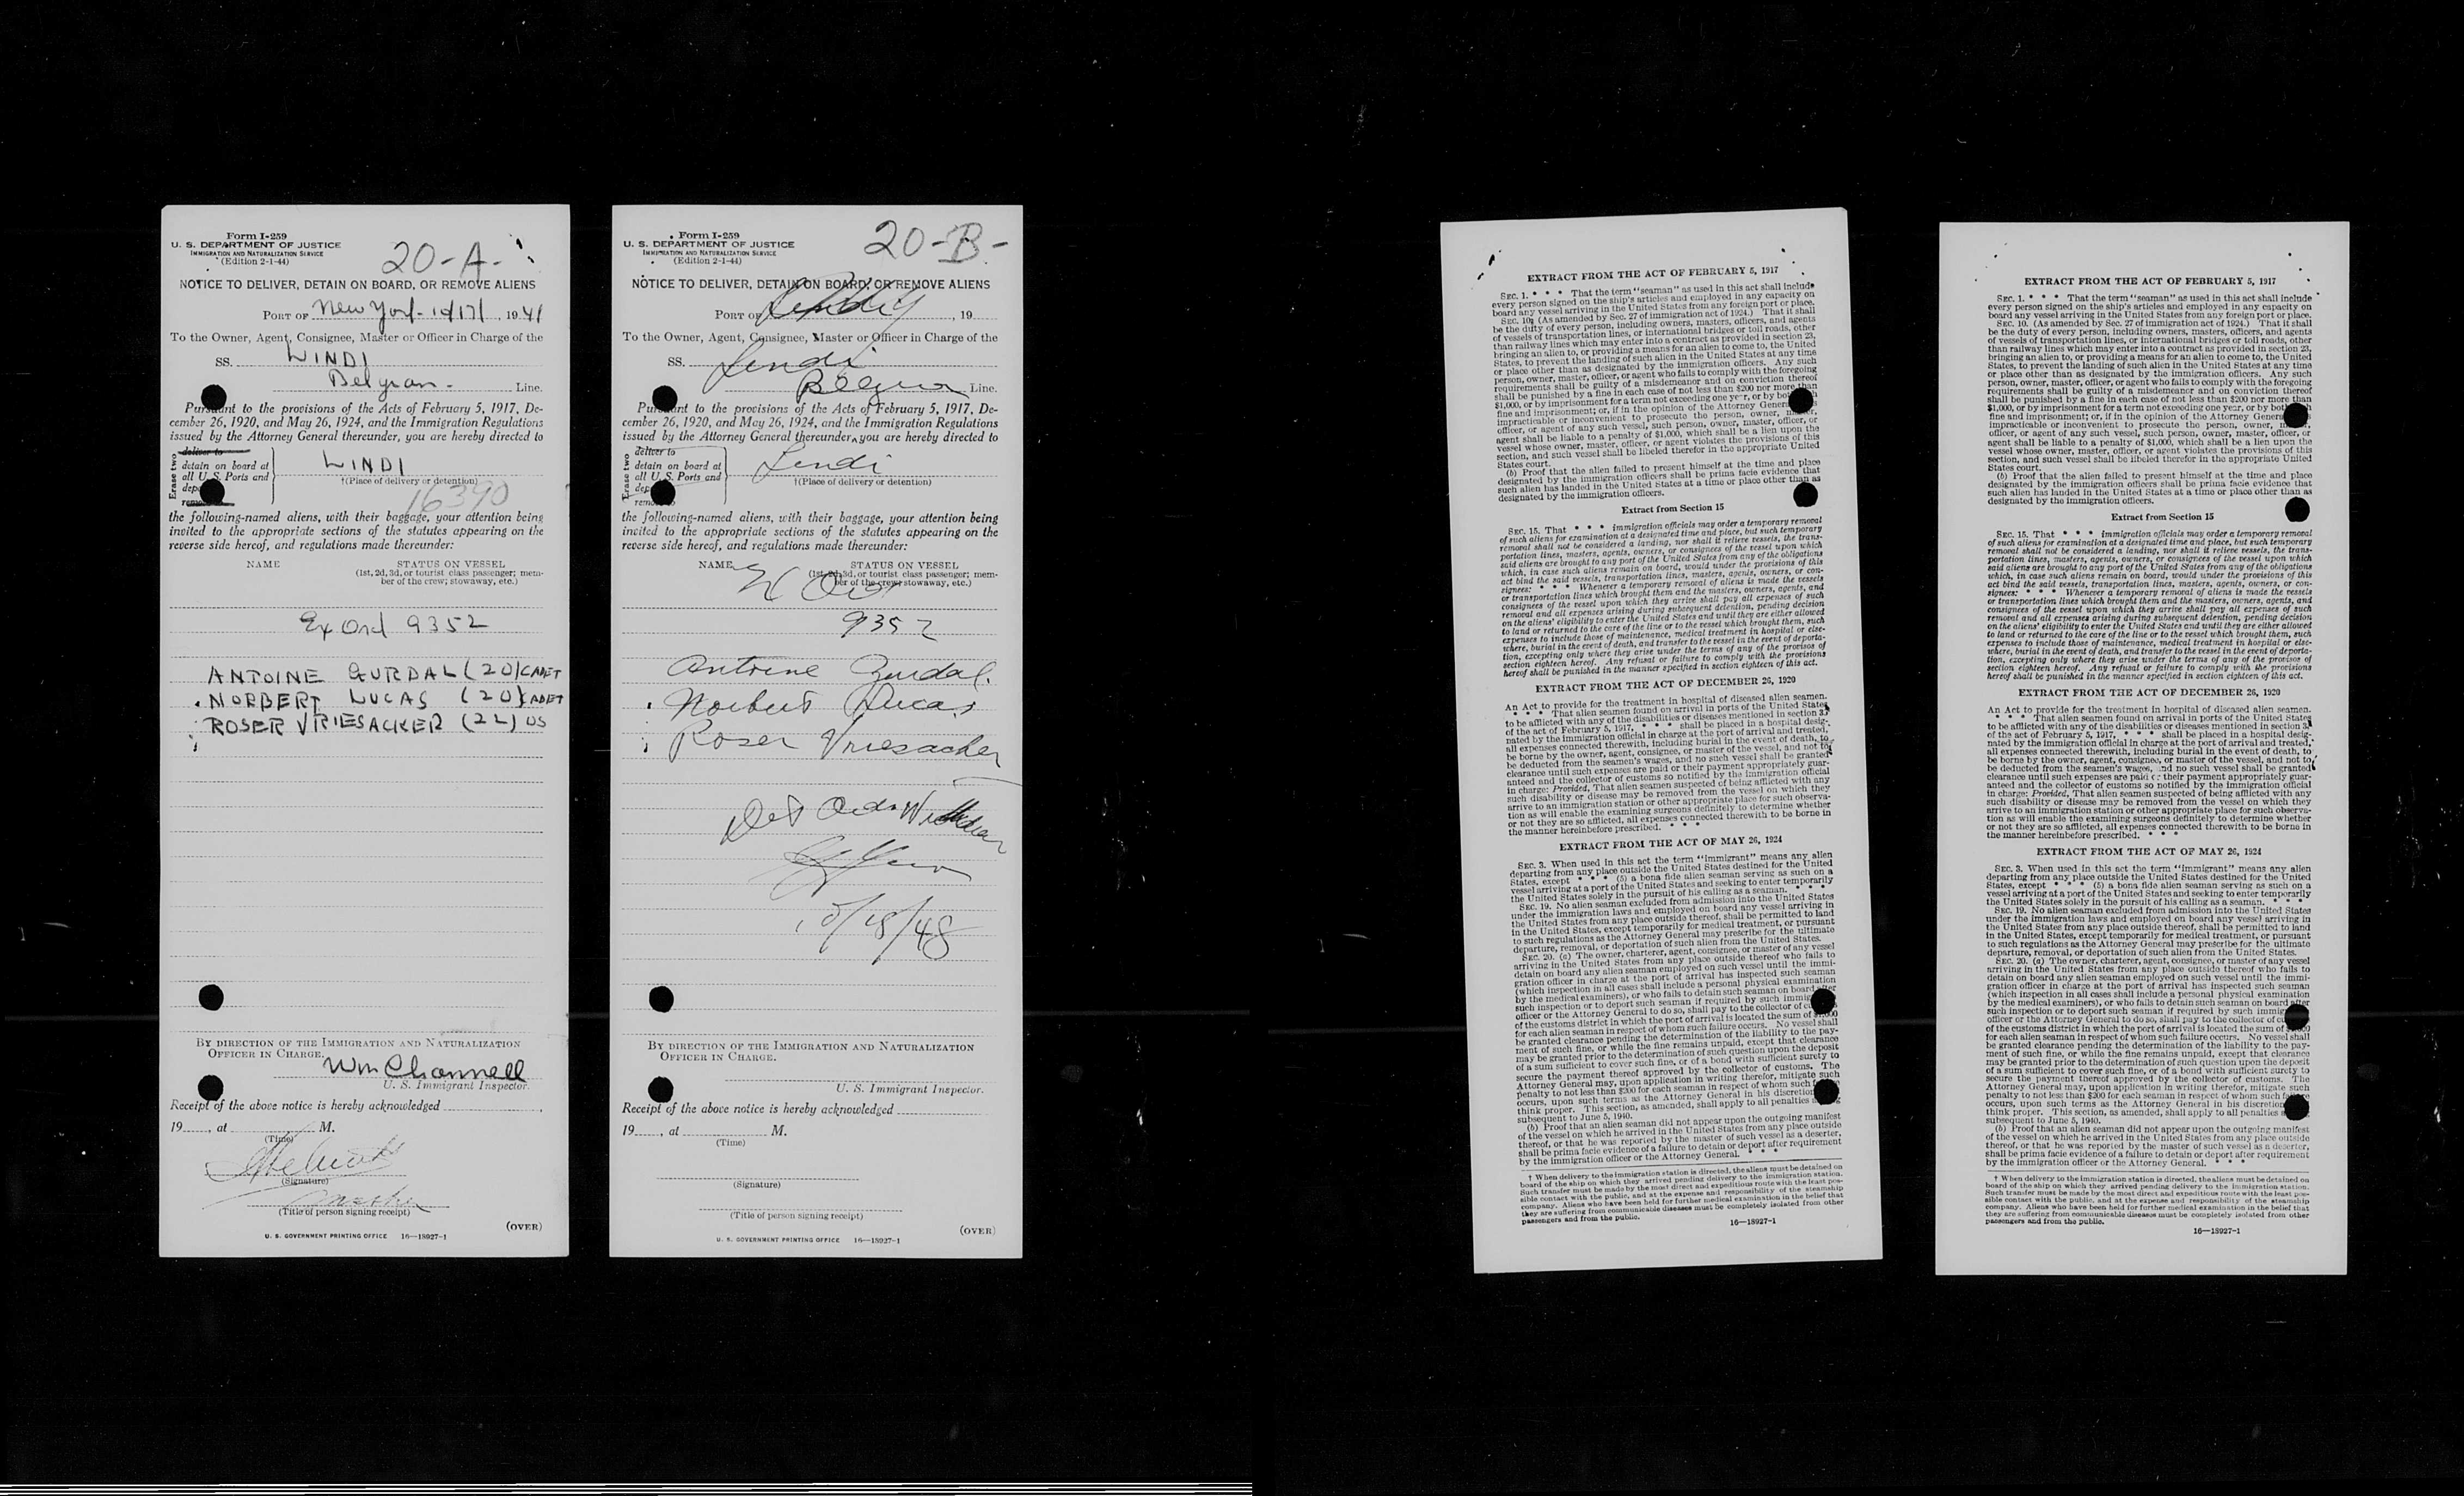 Form I-259
U. S. DEPARTMENT OF JUSTICE
IMMIGRATION AND NATURALIZATION SERVICE
(Edition 2-1-44)
20-A-
NOTICE TO DELIVER, DETAIN ON BOARD, OR REMOVE ALIENS
PORT OF New York - 10/17/, 19
To the Owner, Agent, Consignee, Master or Officer in Charge of the
SS. LINDI
Belgian - Line.
Pursuant to the provisions of the Acts of February 5, 1917, De-
cember 26, 1920, and May 26, 1924, and the Immigration Regulations
issued by the Attorney General thereunder, you are hereby directed to
Erase two
deliver to
detain on board at
all U. S. Ports and
remove to
LINDI
†(Place of delivery or detention)
16390
the following-named aliens, with their baggage, your attention being
invited to the appropriate sections of the statutes appearing on the
reverse side hereof, and regulations made thereunder:
NAME STATUS ON VESSEL
(1st, 2d, 3d, or tourist class passenger; mem-
ber of the crew; stowaway, etc.)
Ex Ord 9352
ANTOINE GURDAL (20) CADET
NORBERT LUCAS (20) CADET
ROSER VRIESACKER (22) OS
BY DIRECTION OF THE IMMIGRATION AND NATURALIZATION
OFFICER IN CHARGE.
Wm Channell
U. S. Immigrant Inspector.
Receipt of the above notice is hereby acknowledged
19, at M.
(Time)
(Signature)
Master
(Title of person signing receipt)
(OVER)
U. S. GOVERNMENT PRINTING OFFICE 16—18927-1
Form I-259
U. S. DEPARTMENT OF JUSTICE
IMMIGRATION AND NATURALIZATION SERVICE
(Edition 2-1-44)
20-B-
NOTICE TO DELIVER, DETAIN ON BOARD, OR REMOVE ALIENS
PORT OF , 19
To the Owner, Agent, Consignee, Master or Officer in Charge of the
SS. Lindi
Belgian Line.
Pursuant to the provisions of the Acts of February 5, 1917, De-
cember 26, 1920, and May 26, 1924, and the Immigration Regulations
issued by the Attorney General thereunder, you are hereby directed to
Erase two
deliver to
detain on board at
all U. S. Ports and
remove to
Lindi
†(Place of delivery or detention)
the following-named aliens, with their baggage, your attention being
invited to the appropriate sections of the statutes appearing on the
reverse side hereof, and regulations made thereunder:
NAME STATUS ON VESSEL
(1st, 2d, 3d, or tourist class passenger; mem-
ber of the crew; stowaway, etc.)
9352
Antoine Gurdal.
Norbert Lucas
Roser Vriesacker
Det
10/18/48
BY DIRECTION OF THE IMMIGRATION AND NATURALIZATION
OFFICER IN CHARGE.
U. S. Immigrant Inspector.
Receipt of the above notice is hereby acknowledged
19, at M.
(Time)
(Signature)
(Title of person signing receipt)
(OVER)
U. S. GOVERNMENT PRINTING OFFICE 16—18927-1
EXTRACT FROM THE ACT OF FEBRUARY 5, 1917
SEC. 1. * * * That the term "seaman" as used in this act shall include
every person signed on the ship's articles and employed in any capacity on
board any vessel arriving in the United States from any foreign port or place.
SEC. 10. (As amended by Sec. 27 of immigration act of 1924.) That it shall
be the duty of every person, including owners, masters, officers, and agents
of vessels of transportation lines, or international bridges or toll roads, other
than railway lines which may enter into a contract as provided in section 23,
bringing an alien to, or providing a means for an alien to come to, the United
States, to prevent the landing of such alien in the United States at any time
or place other than as designated by the immigration officers. Any such
person, owner, master, officer, or agent who fails to comply with the foregoing
requirements shall be guilty of a misdemeanor and on conviction thereof
shall be punished by a fine in each case of not less than $200 nor more than
$1,000, or by imprisonment for a term not exceeding one year, or by both such
fine and imprisonment; or, if in the opinion of the Attorney General, it is
impracticable or inconvenient to prosecute the person, owner, master,
officer, or agent of any such vessel, such person, owner, master, officer, or
agent shall be liable to a penalty of $1,000, which shall be a lien upon the
vessel whose owner, master, officer, or agent violates the provisions of this
section, and such vessel shall be libeled therefor in the appropriate United
States court.
(b) Proof that the alien failed to present himself at the time and place
designated by the immigration officers shall be prima facie evidence that
such alien has landed in the United States at a time or place other than as
designated by the immigration officers.
Extract from Section 15
SEC. 15. That * * * immigration officials may order a temporary removal
of such aliens for examination at a designated time and place, but such temporary
removal shall not be considered a landing, nor shall it relieve vessels, the trans-
portation lines, masters, agents, owners, or consignees of the vessel upon which
said aliens are brought to any port of the United States from any of the obligations
which, in case such aliens remain on board, would under the provisions of this
act bind the said vessels, transportation lines, masters, agents, owners, or con-
signees: * * * Whenever a temporary removal of aliens is made the vessels
or transportation lines which brought them and the masters, owners, agents, and
consignees of the vessel upon which they arrive shall pay all expenses of such
removal and all expenses arising during subsequent detention, pending decision
on the aliens' eligibility to enter the United States and until they are either allowed
to land or returned to the care of the line or to the vessel which brought them, such
expenses to include those of maintenance, medical treatment in hospital or else-
where, burial in the event of death, and transfer to the vessel in the event of deporta-
tion, excepting only where they arise under the terms of any of the provisos of
section eighteen hereof. Any refusal or failure to comply with the provisions
hereof shall be punished in the manner specified in section eighteen of this act.
EXTRACT FROM THE ACT OF DECEMBER 26, 1920
An Act to provide for the treatment in hospital of diseased alien seamen.
* * * That alien seamen found on arrival in ports of the United States
to be afflicted with any of the disabilities or diseases mentioned in section 35
of the act of February 5, 1917, * * * shall be placed in a hospital desig-
nated by the immigration official in charge at the port of arrival and treated,
all expenses connected therewith, including burial in the event of death, to
be borne by the owner, agent, consignee, or master of the vessel, and not to
be deducted from the seamen's wages, and no such vessel shall be granted
clearance until such expenses are paid or their payment appropriately guar-
anteed and the collector of customs so notified by the immigration official
in charge: Provided, That alien seamen suspected of being afflicted with any
such disability or disease may be removed from the vessel on which they
arrive to an immigration station or other appropriate place for such observa-
tion as will enable the examining surgeons definitely to determine whether
or not they are so afflicted, all expenses connected therewith to be borne in
the manner hereinbefore prescribed. * * *
EXTRACT FROM THE ACT OF MAY 26, 1924
SEC. 3. When used in this act the term "immigrant" means any alien
departing from any place outside the United States destined for the United
States, except * * * (5) a bona fide alien seaman serving as such on a
vessel arriving at a port of the United States and seeking to enter temporarily
the United States solely in the pursuit of his calling as a seaman. * * *
SEC. 19. No alien seaman excluded from admission into the United States
under the immigration laws and employed on board any vessel arriving in
the United States from any place outside thereof, shall be permitted to land
in the United States, except temporarily for medical treatment, or pursuant
to such regulations as the Attorney General may prescribe for the ultimate
departure, removal, or deportation of such alien from the United States.
SEC. 20. (a) The owner, charterer, agent, consignee, or master of any vessel
arriving in the United States from any place outside thereof who fails to
detain on board any alien seaman employed on such vessel until the immi-
gration officer in charge at the port of arrival has inspected such seaman
(which inspection in all cases shall include a personal physical examination
by the medical examiners), or who fails to detain such seaman on board after
such inspection or to deport such seaman if required by such immigration
officer or the Attorney General to do so, shall pay to the collector of customs
of the customs district in which the port of arrival is located the sum of $1,000
for each alien seaman in respect of whom such failure occurs. No vessel shall
be granted clearance pending the determination of the liability to the pay-
ment of such fine, or while the fine remains unpaid, except that clearance
may be granted prior to the determination of such question upon the deposit
of a sum sufficient to cover such fine, or of a bond with sufficient surety to
secure the payment thereof approved by the collector of customs. The
Attorney General may, upon application in writing therefor, mitigate such
penalty to not less than $200 for each seaman in respect of whom such failure
occurs, upon such terms as the Attorney General in his discretion shall
think proper. This section, as amended, shall apply to all penalties arising
subsequent to June 5, 1940.
(b) Proof that an alien seaman did not appear upon the outgoing manifest
of the vessel on which he arrived in the United States from any place outside
thereof, or that he was reported by the master of such vessel as a deserter,
shall be prima facie evidence of a failure to detain or deport after requirement
by the immigration officer or the Attorney General. * * *
† When delivery to the immigration station is directed, the aliens must be detained on
board of the ship on which they arrived pending delivery to the immigration station.
Such transfer must be made by the most direct and expeditious route with the least pos-
sible contact with the public, and at the expense and responsibility of the steamship
company. Aliens who have been held for further medical examination in the belief that
they are suffering from communicable diseases must be completely isolated from other
passengers and from the public.
16—18927-1
EXTRACT FROM THE ACT OF FEBRUARY 5, 1917
SEC. 1. * * * That the term "seaman" as used in this act shall include
every person signed on the ship's articles and employed in any capacity on
board any vessel arriving in the United States from any foreign port or place.
SEC. 10. (As amended by Sec. 27 of immigration act of 1924.) That it shall
be the duty of every person, including owners, masters, officers, and agents
of vessels of transportation lines, or international bridges or toll roads, other
than railway lines which may enter into a contract as provided in section 23,
bringing an alien to, or providing a means for an alien to come to, the United
States, to prevent the landing of such alien in the United States at any time
or place other than as designated by the immigration officers. Any such
person, owner, master, officer, or agent who fails to comply with the foregoing
requirements shall be guilty of a misdemeanor and on conviction thereof
shall be punished by a fine in each case of not less than $200 nor more than
$1,000, or by imprisonment for a term not exceeding one year, or by both such
fine and imprisonment; or, if in the opinion of the Attorney General, it is
impracticable or inconvenient to prosecute the person, owner, master,
officer, or agent of any such vessel, such person, owner, master, officer, or
agent shall be liable to a penalty of $1,000, which shall be a lien upon the
vessel whose owner, master, officer, or agent violates the provisions of this
section, and such vessel shall be libeled therefor in the appropriate United
States court.
(b) Proof that the alien failed to present himself at the time and place
designated by the immigration officers shall be prima facie evidence that
such alien has landed in the United States at a time or place other than as
designated by the immigration officers.
Extract from Section 15
SEC. 15. That * * * immigration officials may order a temporary removal
of such aliens for examination at a designated time and place, but such temporary
removal shall not be considered a landing, nor shall it relieve vessels, the trans-
portation lines, masters, agents, owners, or consignees of the vessel upon which
said aliens are brought to any port of the United States from any of the obligations
which, in case such aliens remain on board, would under the provisions of this
act bind the said vessels, transportation lines, masters, agents, owners, or con-
signees: * * * Whenever a temporary removal of aliens is made the vessels
or transportation lines which brought them and the masters, owners, agents, and
consignees of the vessel upon which they arrive shall pay all expenses of such
removal and all expenses arising during subsequent detention, pending decision
on the aliens' eligibility to enter the United States and until they are either allowed
to land or returned to the care of the line or to the vessel which brought them, such
expenses to include those of maintenance, medical treatment in hospital or else-
where, burial in the event of death, and transfer to the vessel in the event of deporta-
tion, excepting only where they arise under the terms of any of the provisos of
section eighteen hereof. Any refusal or failure to comply with the provisions
hereof shall be punished in the manner specified in section eighteen of this act.
EXTRACT FROM THE ACT OF DECEMBER 26, 1920
An Act to provide for the treatment in hospital of diseased alien seamen.
* * * That alien seamen found on arrival in ports of the United States
to be afflicted with any of the disabilities or diseases mentioned in section 35
of the act of February 5, 1917, * * * shall be placed in a hospital desig-
nated by the immigration official in charge at the port of arrival and treated,
all expenses connected therewith, including burial in the event of death, to
be borne by the owner, agent, consignee, or master of the vessel, and not to
be deducted from the seamen's wages, and no such vessel shall be granted
clearance until such expenses are paid or their payment appropriately guar-
anteed and the collector of customs so notified by the immigration official
in charge: Provided, That alien seamen suspected of being afflicted with any
such disability or disease may be removed from the vessel on which they
arrive to an immigration station or other appropriate place for such observa-
tion as will enable the examining surgeons definitely to determine whether
or not they are so afflicted, all expenses connected therewith to be borne in
the manner hereinbefore prescribed. * * *
EXTRACT FROM THE ACT OF MAY 26, 1924
SEC. 3. When used in this act the term "immigrant" means any alien
departing from any place outside the United States destined for the United
States, except * * * (5) a bona fide alien seaman serving as such on a
vessel arriving at a port of the United States and seeking to enter temporarily
the United States solely in the pursuit of his calling as a seaman. * * *
SEC. 19. No alien seaman excluded from admission into the United States
under the immigration laws and employed on board any vessel arriving in
the United States from any place outside thereof, shall be permitted to land
in the United States, except temporarily for medical treatment, or pursuant
to such regulations as the Attorney General may prescribe for the ultimate
departure, removal, or deportation of such alien from the United States.
SEC. 20. (a) The owner, charterer, agent, consignee, or master of any vessel
arriving in the United States from any place outside thereof who fails to
detain on board any alien seaman employed on such vessel until the immi-
gration officer in charge at the port of arrival has inspected such seaman
(which inspection in all cases shall include a personal physical examination
by the medical examiners), or who fails to detain such seaman on board after
such inspection or to deport such seaman if required by such immigration
officer or the Attorney General to do so, shall pay to the collector of customs
of the customs district in which the port of arrival is located the sum of $1,000
for each alien seaman in respect of whom such failure occurs. No vessel shall
be granted clearance pending the determination of the liability to the pay-
ment of such fine, or while the fine remains unpaid, except that clearance
may be granted prior to the determination of such question upon the deposit
of a sum sufficient to cover such fine, or of a bond with sufficient surety to
secure the payment thereof approved by the collector of customs. The
Attorney General may, upon application in writing therefor, mitigate such
penalty to not less than $200 for each seaman in respect of whom such failure
occurs, upon such terms as the Attorney General in his discretion shall
think proper. This section, as amended, shall apply to all penalties arising
subsequent to June 5, 1940.
(b) Proof that an alien seaman did not appear upon the outgoing manifest
of the vessel on which he arrived in the United States from any place outside
thereof, or that he was reported by the master of such vessel as a deserter,
shall be prima facie evidence of a failure to detain or deport after requirement
by the immigration officer or the Attorney General. * * *
† When delivery to the immigration station is directed, the aliens must be detained on
board of the ship on which they arrived pending delivery to the immigration station.
Such transfer must be made by the most direct and expeditious route with the least pos-
sible contact with the public, and at the expense and responsibility of the steamship
company. Aliens who have been held for further medical examination in the belief that
they are suffering from communicable diseases must be completely isolated from other
passengers and from the public.
16—18927-1